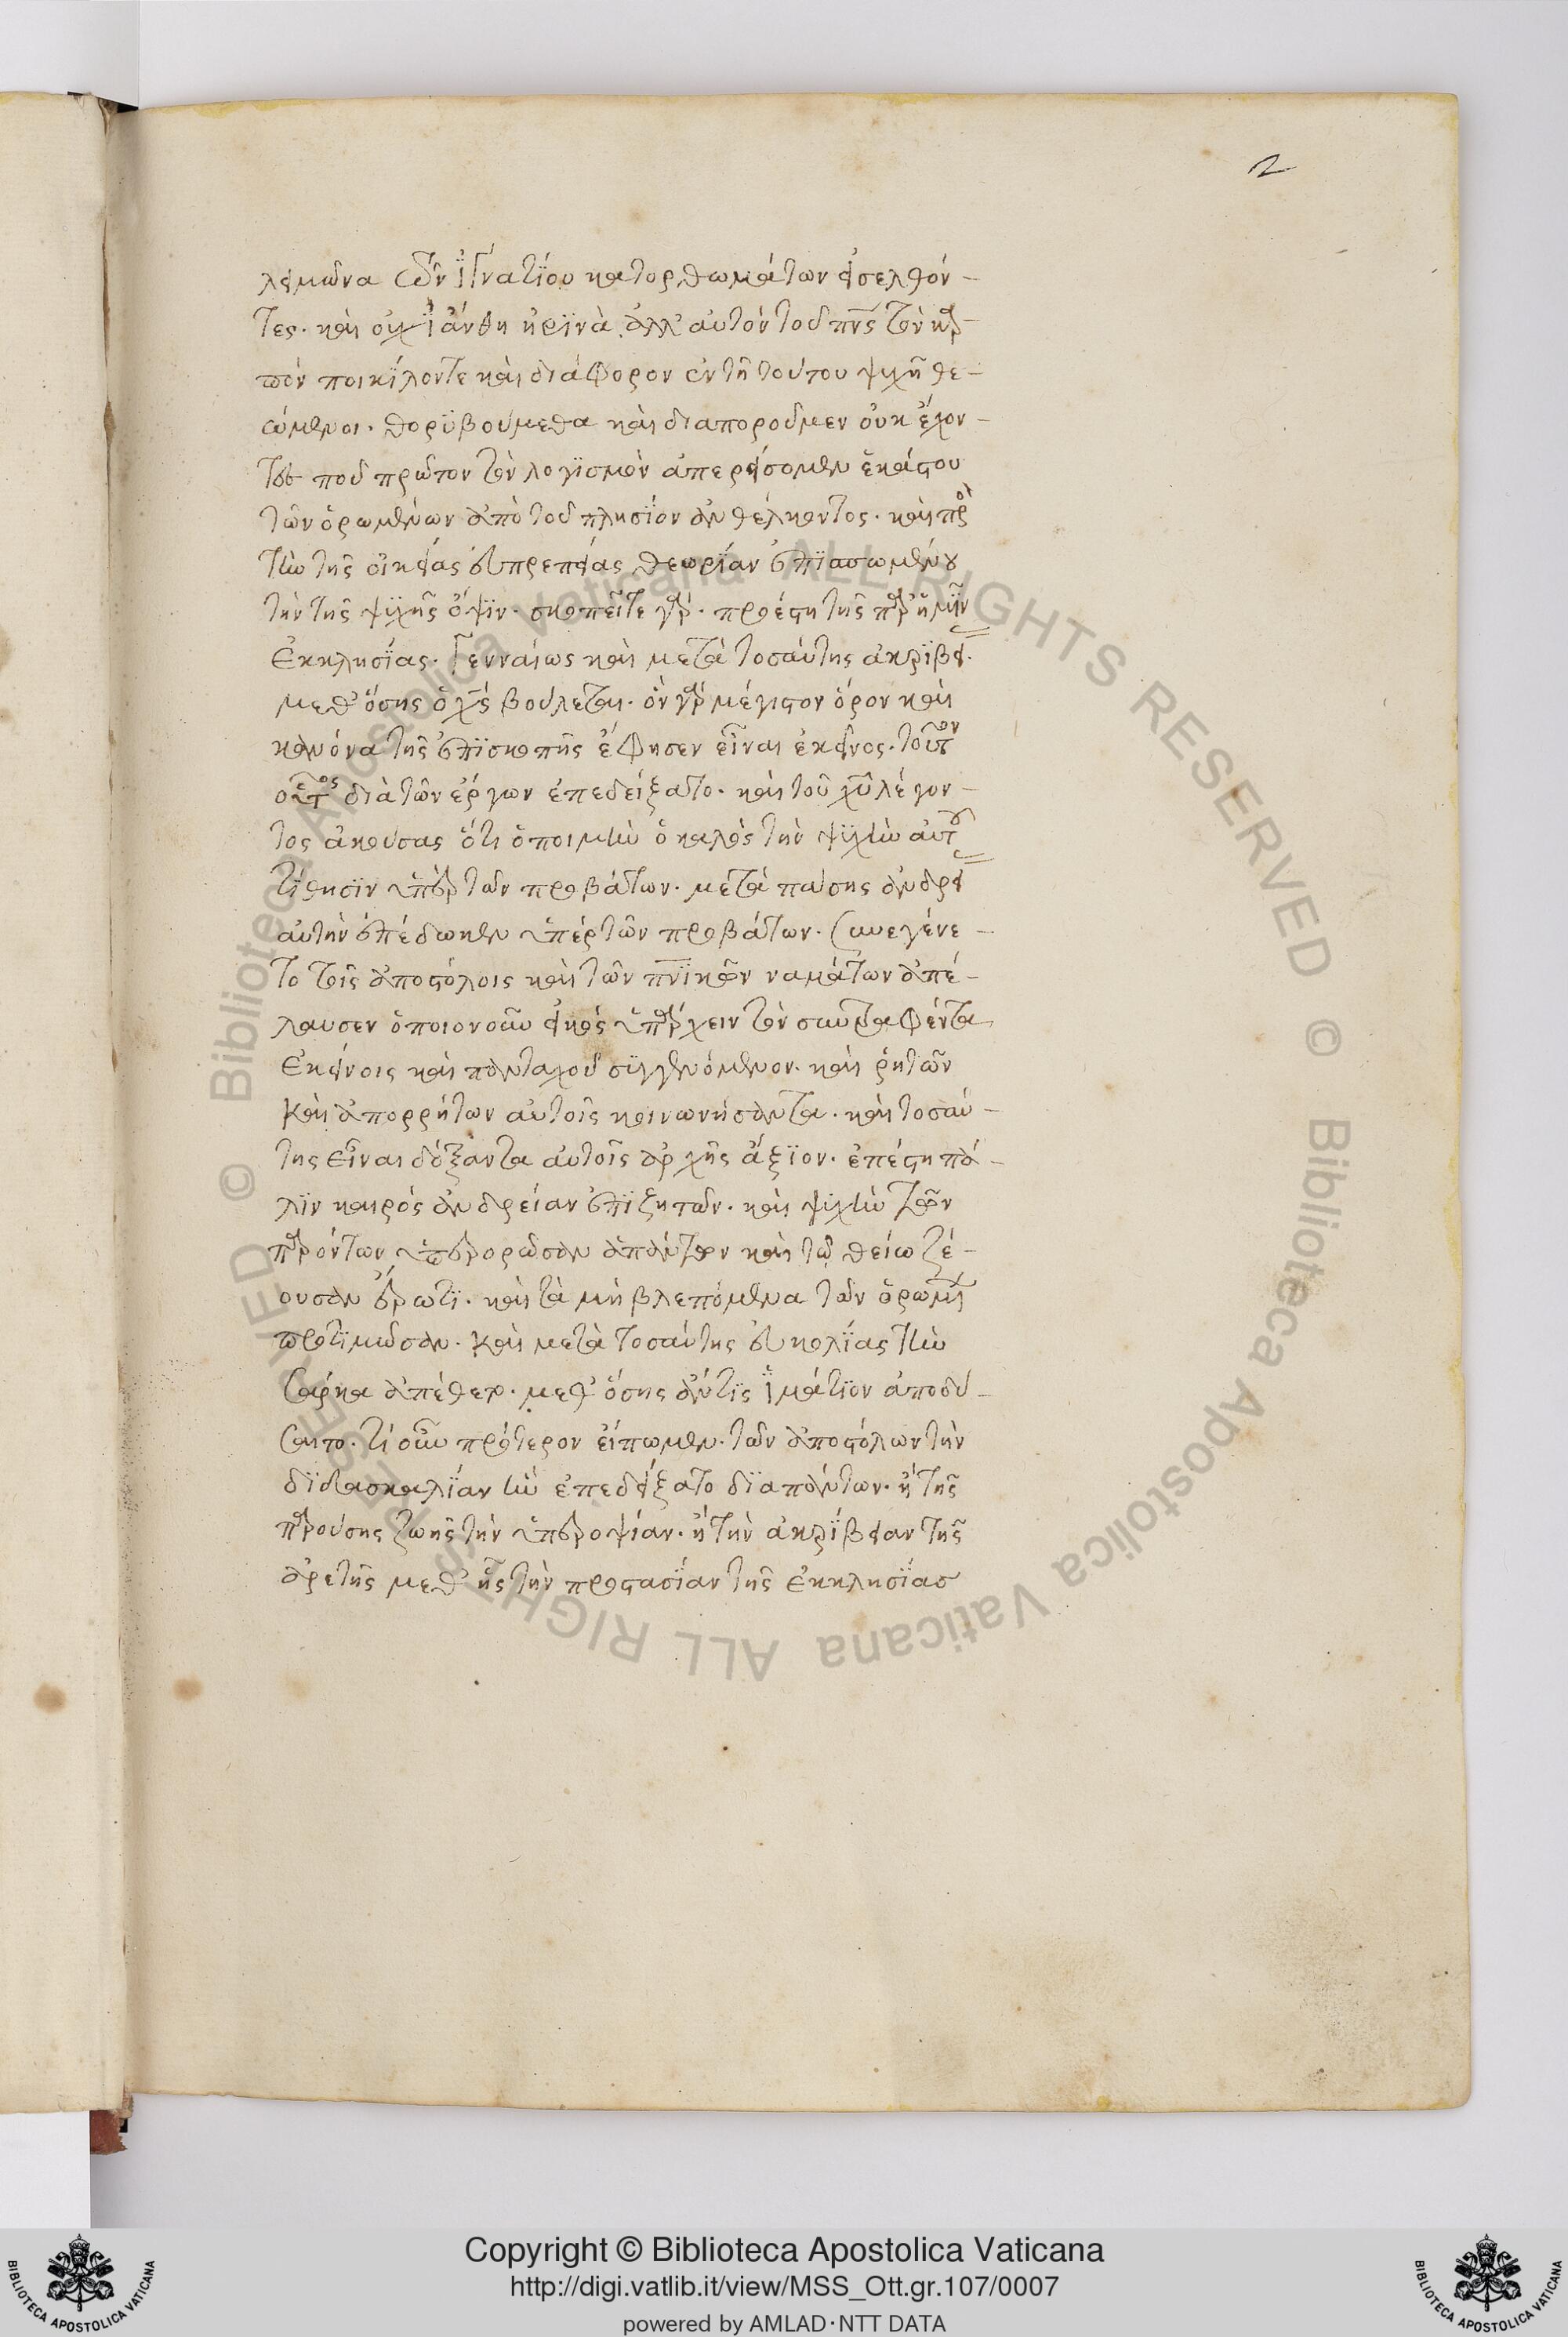 2
λειμῶνα τῶν ἰγνατίου κατορθωμάτων εἰσελθόν-
τες. καὶ οὐχὶ ἄνθη ἠρϊνὰ ἀλλ' αὐτὸν τοῦ πνς τὸν καρ-
πὸν ποικίλοντε καὶ διάφορον ἐν τῇ τούτου ψυχῇ θε-
ώμενοι. θορϋβούμεθα καὶ διαποροῦμεν οὐκ ἔχον-
τες ποῦ πρῶτον τὸν λογϊσμὸν ἀπερείσομεν ἑκάστου
τῶν ὁρωμένων ἀπὸ τοῦ πλησίον ἀνθέλκοντος. καὶ πρὸς
τὴν τῆς οἰκείας εὐπρεπείας θεωρίαν ἐπϊασωμένου
τὴν τῆς ψϋχῆς ὄψϊν. σκοπεῖτε γάρ. προέστη τῆς παρ' ἡμῖν
ἐκκλησίας. γενναίως καὶ μετὰ τοσαύτης ἀκρϊβεί.
μεθ' ὅσης ὁ χς βούλεται. ὃν γὰρ μέγιστον ὅρον καὶ
κανόνα τῆς ἐπϊσκοπῆς ἔφησεν εἶναι ἐκεῖνος. τοῦτον
οὗτος διὰ τῶν ἔργων ἐπεδείξατο. καὶ τοῦ χυ λέγον-
τος ἀκούσας ὅτι ὁ ποιμὴν ὁ καλὸς τὴν ψϋχὴν αὐτοῦ
τίθησϊν ὑπὲρ τῶν προβάτων. μετὰ πάσης ἀνδρεί
αὐτὴν ἐπέδωκεν ὑπὲρ τῶν προβάτων. συνεγένε-
το τοῖς ἀποστόλοις καὶ τῶν πνϊκῶν ναμάτων ἀπέ-
λαυσεν ὁποῖον οὖν εἰκὸς ὑπάρχειν τὸν συντραφέντα
ἐκείνοις καὶ πανταχοῦ σϋγγενόμενον. καὶ ῥητῶν
καὶ ἀπορρήτων αὐτοῖς κοινωνήσαντα. καὶ τοσαύ-
της εἶναι δόξαντα αὐτοῖς ἀρχῆς ἄξϊον. ἐπέστη πά-
λϊν καιρὸς ἀνδρείαν ἐπϊζητῶν. καὶ ψϋχὴν τῶν
παρόντων ὑπερορῶσαν ἁπάντων καὶ τῷ θείω ζέ-
ουσαν ἔρωτϊ. καὶ τὰ μὴ βλεπόμενα τῶν ὁρωμέν
προτϊμῶσαν. καὶ μετὰ τοσαύτης εὐκολϊας τὴν
σάρκα ἀπέθετο. μεθ' ὅσης ἄν τϊς ἱμάτϊον ἀποδύ-
σαιτο. τί οὖν πρότερον εἴπωμεν. τῶν ἀποστόλων τὴν
δϊδασκαλίαν ἣν ἐπεδείξατο δϊαπάντων. ἢ τῆς
παρούσης ζωῆς τὴν ὑπεροψίαν. ἢ τὴν ἀκρίβειαν τῆς
ἀρετῆς μεθ' ἧς τὴν προστασίαν τῆς ἐκκλησίας
Copyright © Biblioteca Apostolica Vaticana
http://digi.vatlib.it/view/MSS_Ott.gr.107/0007
powered by AMLAD·NTT DATA
BIBLIOTECA APOSTOLICA VATICANA
BIBLIOTECA APOSTOLICA VATICANA
© Biblioteca Apostolica Vaticana ALL RIGHTS RESERVED © Biblioteca Apostolica Vaticana ALL RIGHTS RESERVED